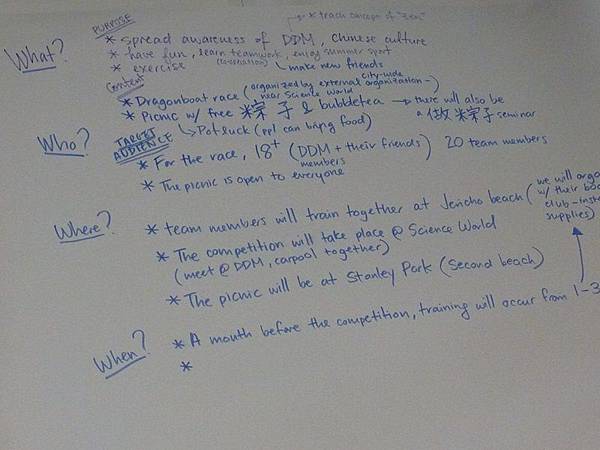 PURPOSE * teach concept of "zen"
What? * spread awareness of DDM, chinese culture
* have fun, learn teamwork, enjoy summer sport
* exercise (co-operation) make new friends
Content
* Dragonboat race (organized by external organization - city-wide
near Science World)
* Picnic w/ free 粽子 & bubbletea → there will also be
a 做粽子 seminar
Potluck (ppl can bring food)
Who? TARGET AUDIENCE
* For the race, 18+ (DDM members + their friends) 20 team members
* The picnic is open to everyone
Where? * team members will train together at Jericho beach (we will orga
w/ their boa
club - inst
supplies)
* The competition will take place @ Science World
(meet @ DDM, carpool together)
* The picnic will be at Stanley Park (second beach)
When? * A mouth before the competition, training will occur from 1-3
*